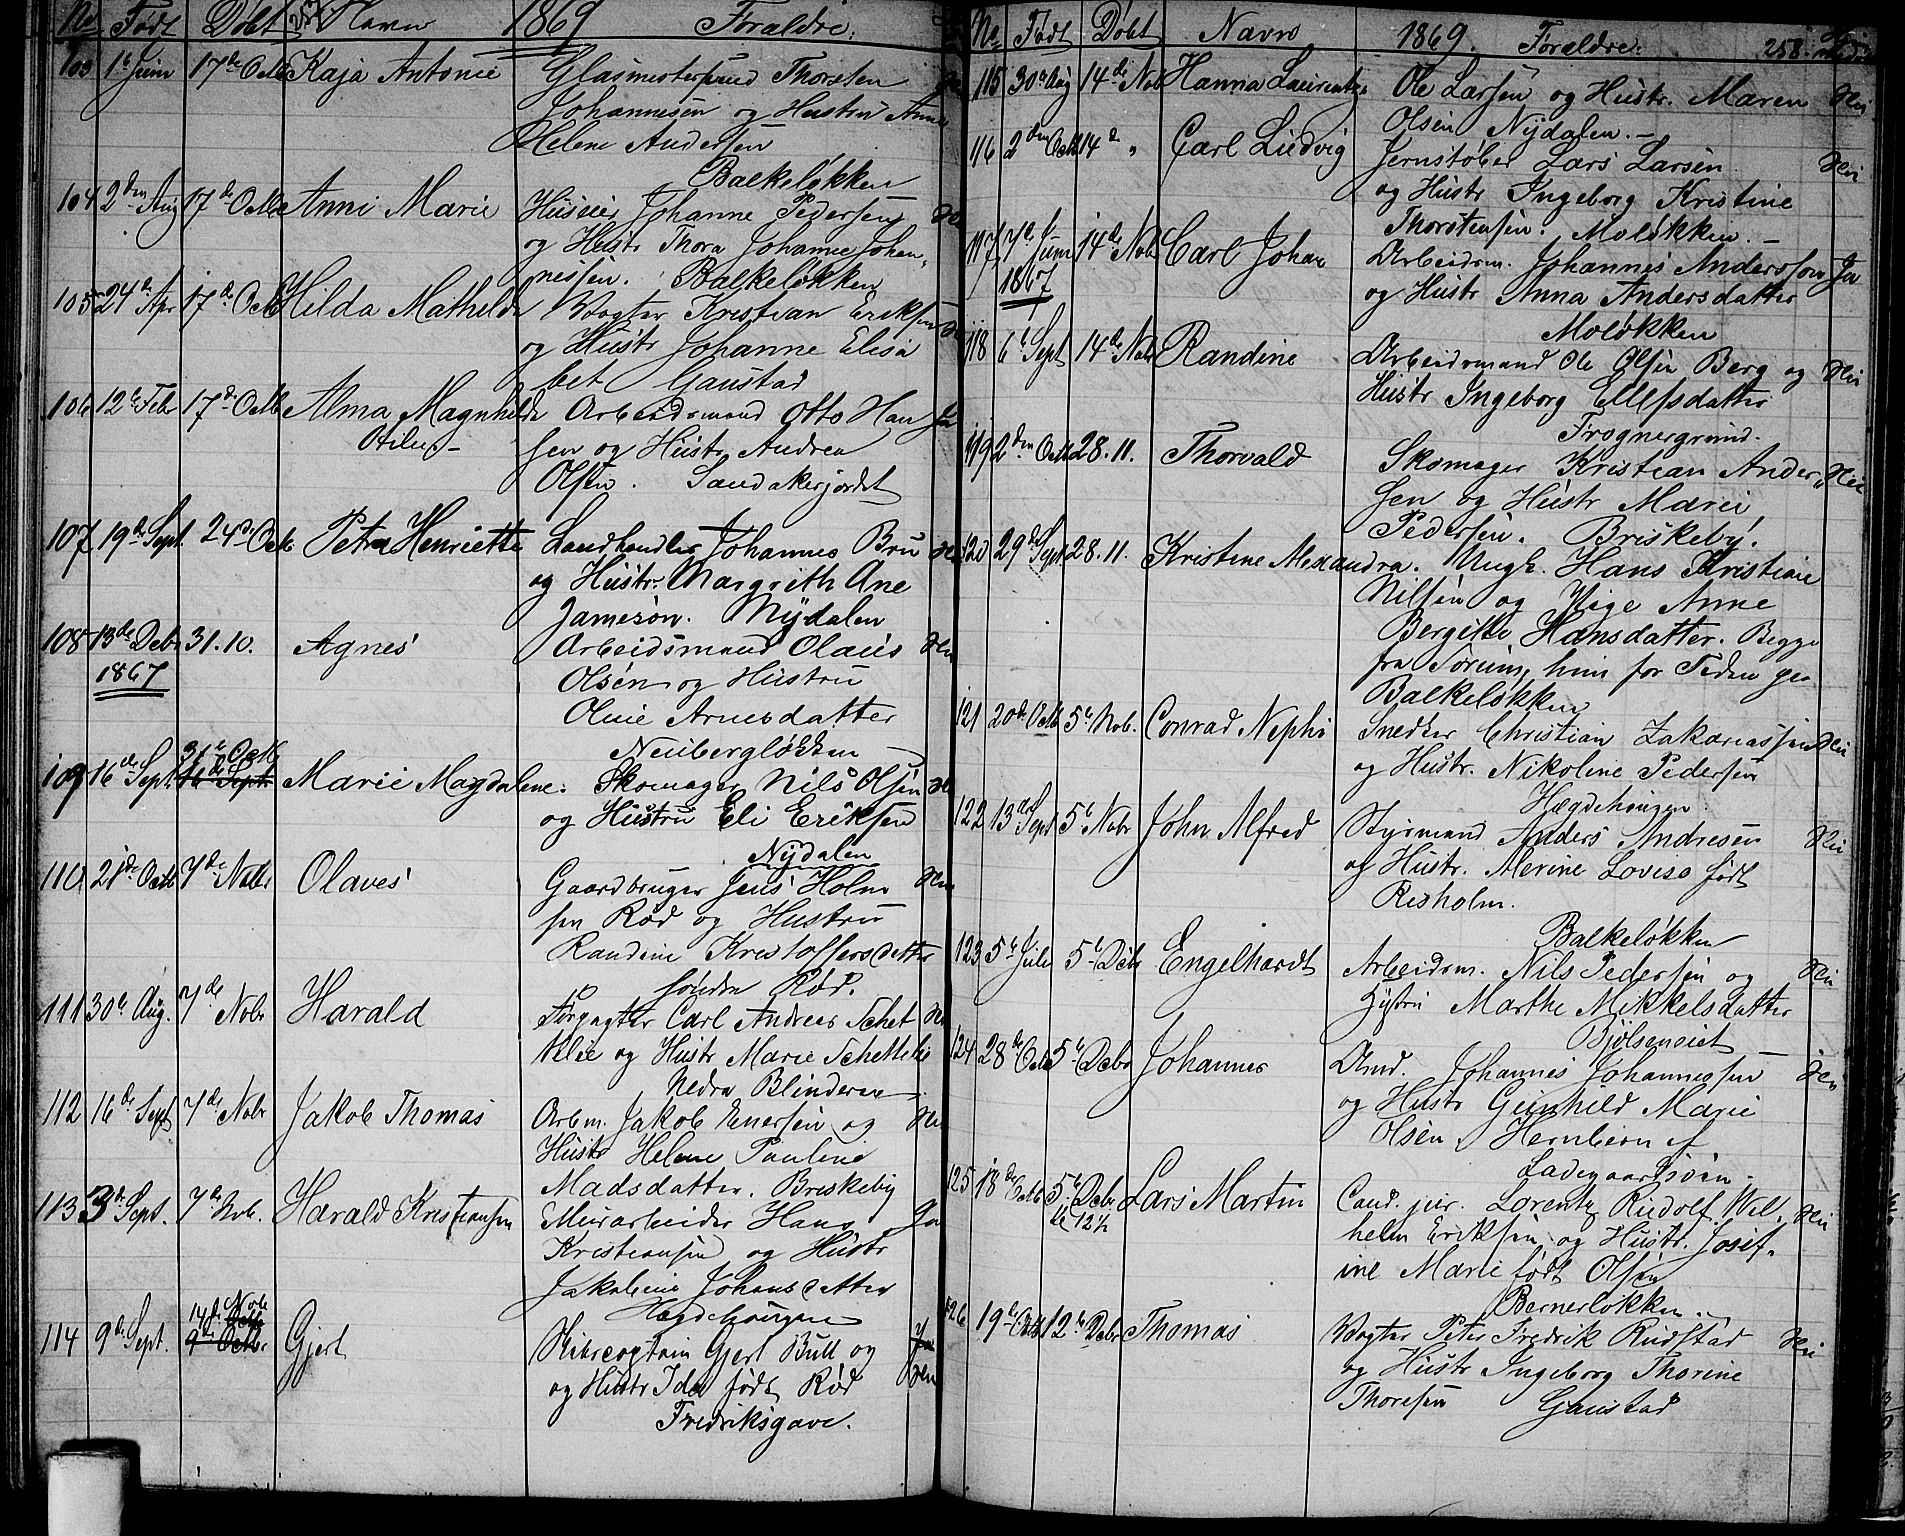 No Født Døbt 257 Navn 1869 Forældre.
103 1e Juni 17de Octb Kaja Antonie Glasmestersvend Thorsten
Johannesen og Hustru Anne
Helene Andersen
Balkeløkken
104 2den Aug 17de Octb Anni Marie Huseier Johanne Pedersen
og Hustr Thora Johanne Johan„
nessen. Balkeløkken
105 24de Apr 17de Octb Hilda Mathilde Vogter Kristian Eriksen
og Hustr Johanne Elisa
bet Gaustad
106 12te Febr 17de Octb Alma Magnhilde Arbeidsmand Otto Han Ja
Otilie sen og Hustr Andrea
Olsen. Sandakerjordet
107 19de Sept. 24de Octb Petra Henriette Landhandler Johannes Bru
og Hustr. Margrith Ane
Jameson. Nydalen
108 13de Debr 31.10. Agnes Arbeidsmand Olaus Nei
1867 Olsen og Hustru
Oline Arnesdatter
Neubergløkken
109 16de Sept. 31te Octb 16de Septr Marie Magdalene. Skomager Nils Olsen
og Hustru Eli Eriksen
Nydalen
110 21de Octb 7de Nobr Olaves Gaardbruger Jens Holm Nei
sen Rød og Hustru
Randine Kristoffersdatter
søndre Rød.
111 30te Aug. 7de Nobr Harald Forpagter Carl Andreas Schet
telie og Hustr Marie Schettelie
Nedre Blinderen
112 16de Sept 7de Nobr Jakob Thomas Arbm. Jakob Enersen og Nei
Hustr Helene Pauline
Madsdatter. Briskeby
113 3de Sept. 7de Nob. Harald Kristiansen Murarbeider Hans Ja
Kristiansen og Hustr
Jakobine Johansdatter
Hægdehaugen
114 9de Sept. 14de Nobr 9de Octbr Gjert Ritmester Gjert Bull og Ja
og Hustr Ida født Rød Nei
Fredriksgave.
No Født Døbt Navn 1869. Forældre. 258.
115 30te Aug 14de Nob Hanna Laurentze Ole Larsen og Hustr. Maren Nei
Olsen Nydalen.–
116 2den Octb 14de „ Carl Ludvig Jernstøber Lars Larsen Nei
og Hustr Ingeborg Kristine
Thorstensen. Moløkken.–
117 7de Juni 14de Nob Carl Johan Arbeidsm. Johannes Andersson Ja
1867 og Hustr Anna Andersdatter
Moløkken
118 6te Sept 14de Nobr Randine Arbeidsmand Ole Olsen Berg og Nei
Hustr Ingeborg Ellefsdatter
Frognergrund.
119 2den Octb 28.11. Thorvald Skomager Kristian Ander„ Nei
sen og Hustr Marie
Pedersen. Briskeby.
120 29de Sept 28.11. Kristine Alexandra. Ungk. Hans Kristian
Nilsen og Pige Anne
Bergitte Hansdatter. Begge
fra Sørum, hun for Tiden paa
Balkeløkken
121 20de Octb 5te Nob. Conrad Nephi Snedker Christian Zakariassen Nei
og Hustr. Nikoline Pedersen
Hægdehaugen.
122 13de Sept 5te Nobr John Alfred Styrmand Anders Andresen Nei
og Hustr. Merine Lovise født
Resholm.
Balkeløkken
123 5te Juli 5te Debr Engelhardt Arbeidsm. Nils Pedersen og Nei
Hustru Marthe Mikkelsdatter
Bjølseneiet
124 28de Octb 5te Debr Johannes Armd. Johannes Johannessen Nei
og Hustr Gunhild Marie
Olsen, Hernbeon af
Ladegaardsøen.–
125 18de Octb 5te Debr Lars Martin Cand. jur. Lorentz Rudolf Wil„ Nei
kl 12½ helm Eriksen og Hustr. Josef„
ine Marie født Olsen
Bernerløkken.–
126 19de Octb 12te Debr Thomas Vogter Peter Fredrik Rudstad Nei
og Hustr Ingeborg Thorine
Thoresen Gaustad